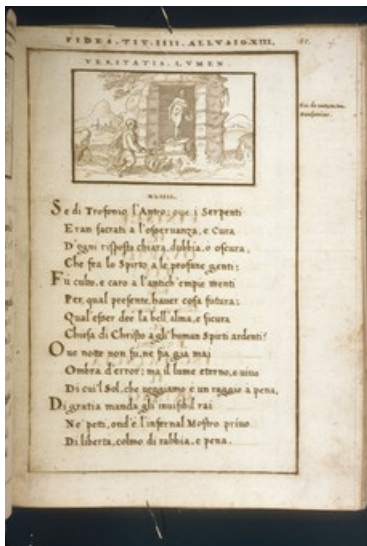 FIDES. TIT. IIII. ALLVSIO. XIII.
VERITATIS. LVMEN.
Se di Trofonio l'Antro; oue i Serpenti
Eran sacrati a l'osseruanza, e Cura
D'ogni risposta chiara, dubbia, o oscura,
Che fea lo Spirto a le profane genti;
Fù culto, e caro a l'antich' empie menti
Per, qual presente, hauer cosa futura;
Qual' esser dee la bell' alma, e sicura
Chiesa di Christo a gli human Spirti ardenti?
Oue notte non fu, ne fia gia mai
Ombra d'error; ma il lume eterno, e uiuo
Di cui'l Sol, che ueggiamo è un raggio a pena,
Di gratia manda gli inuisibil rai
Ne' petti, ond'è l'infernal Mostro priuo
Di liberta, colmo di rabbia, e pena.